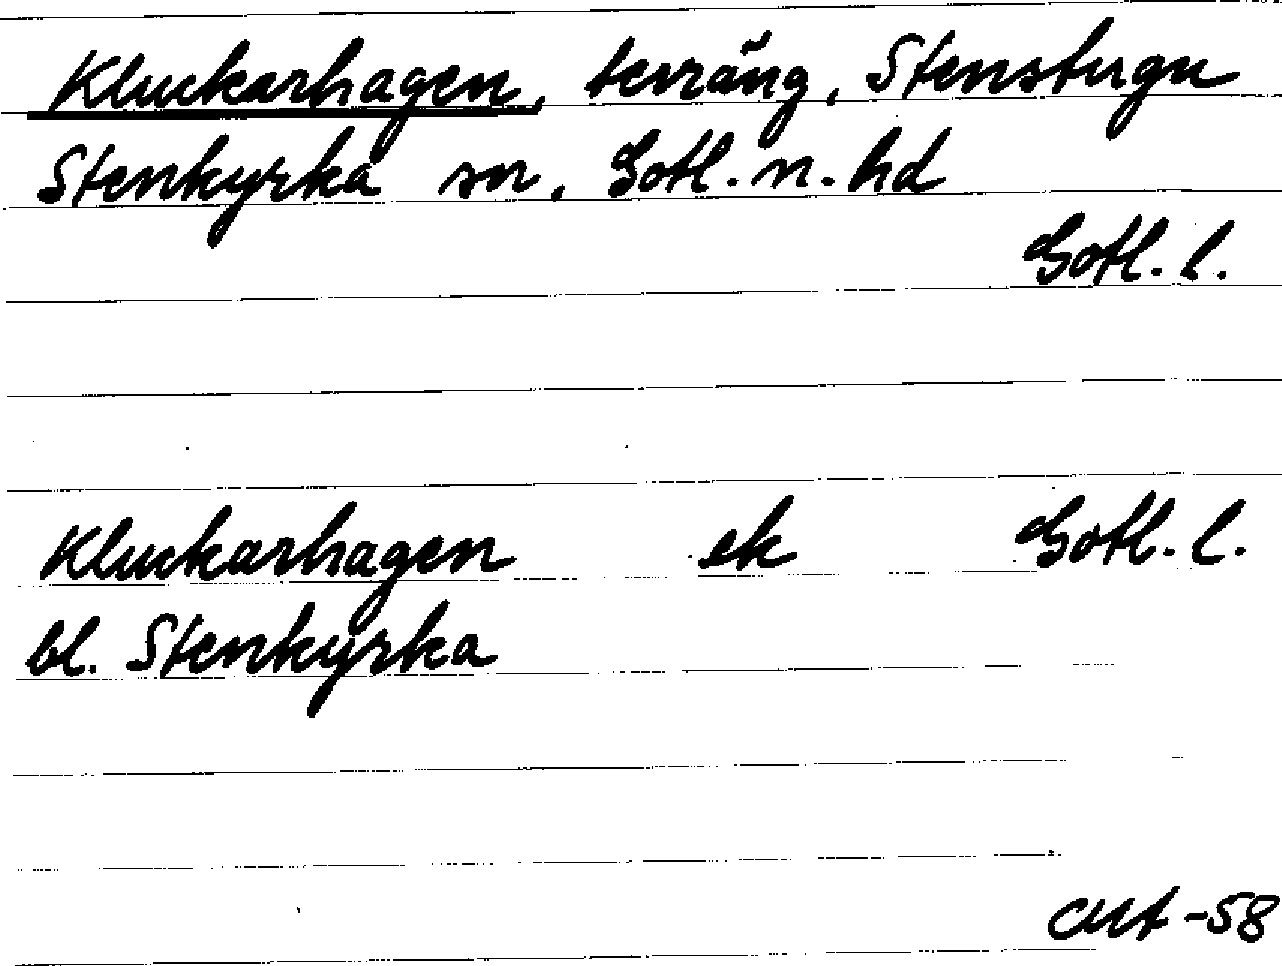 Kluckarhagen, terräng, Stenstugu
Stenkyrka sn, Gotl. n. hd
Gotl. l.
Kluckarhagen ek Gotl. l.
bl. Stenkyrka
-58